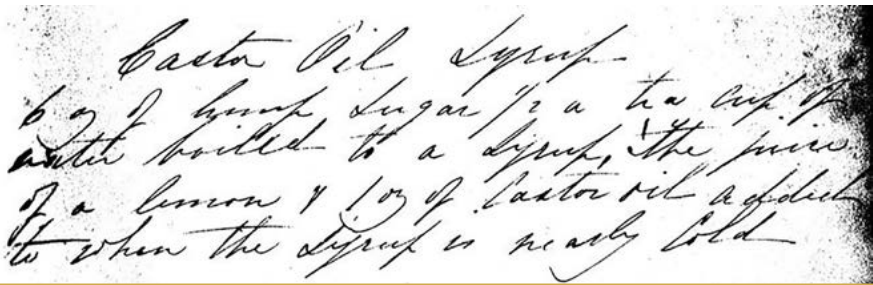 Castor Oil Syrup
6 oz of lump Sugar 1/2 a tea cup of
water boiled to a Syrup, the juice
of a lemon & 1 oz of Castor oil added
to when the Syrup is nearly Cold